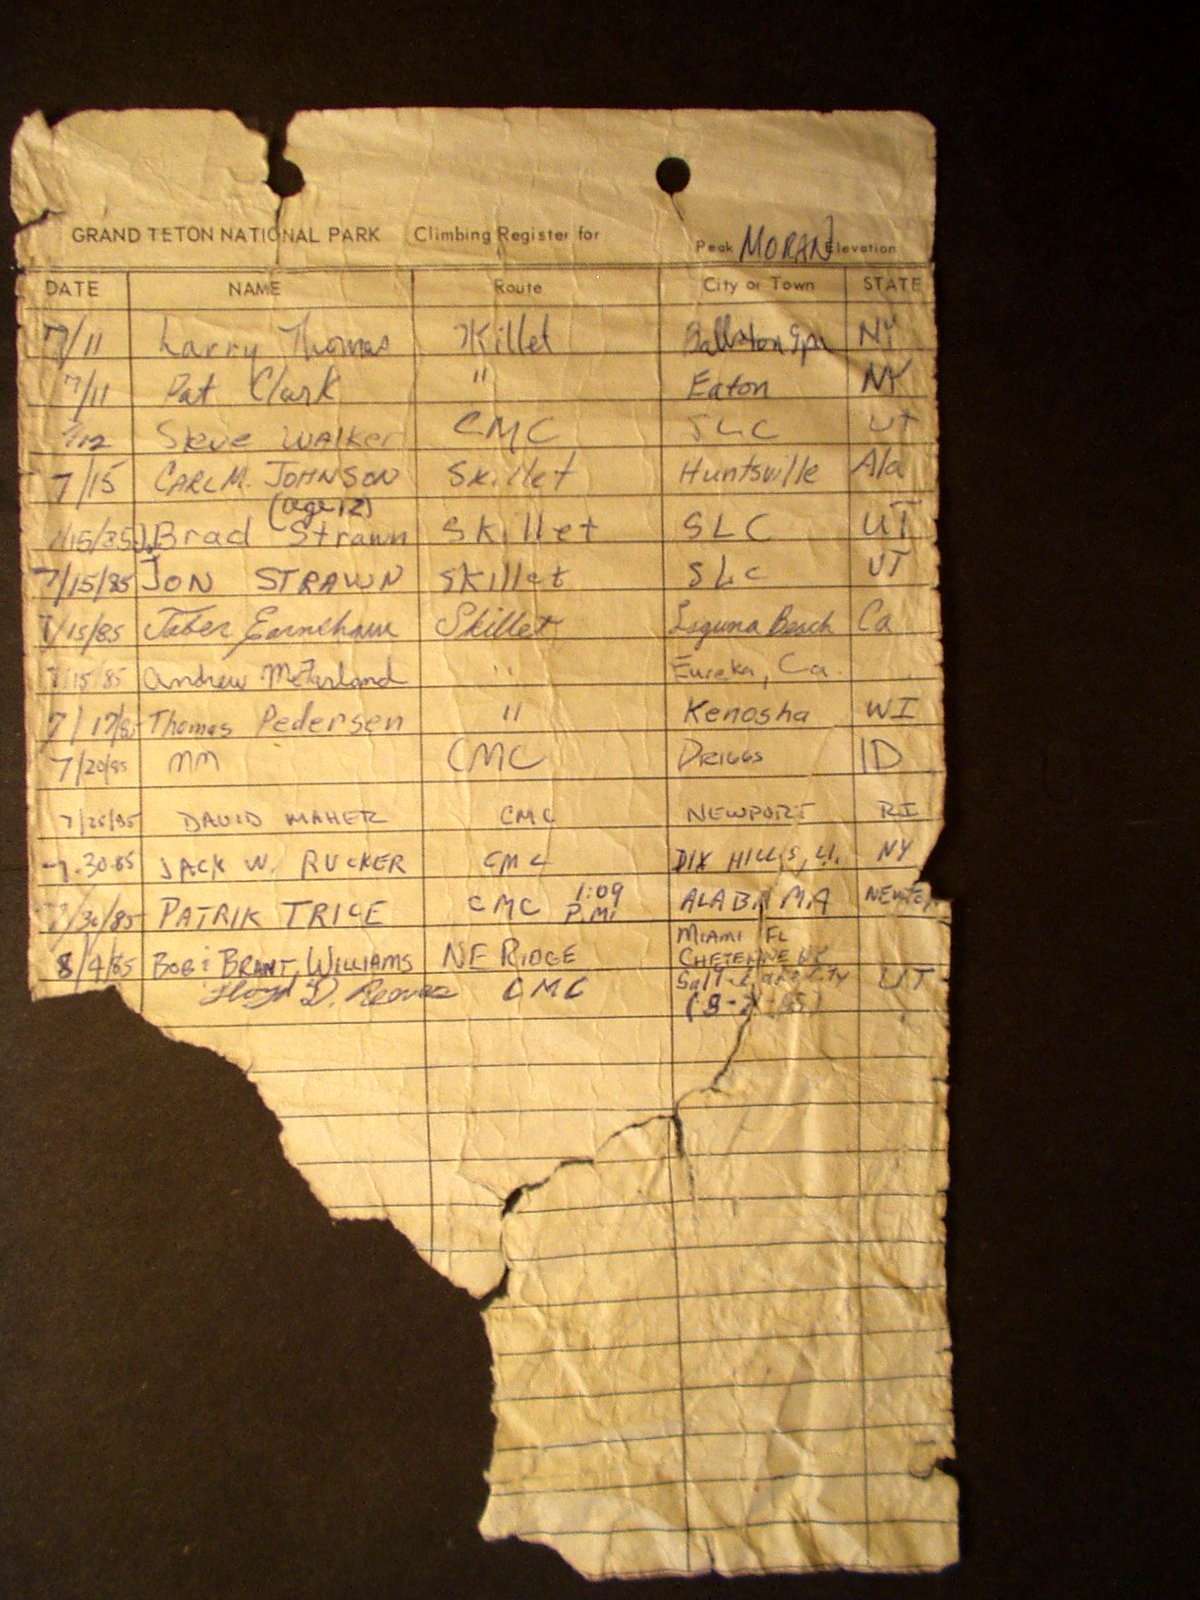 GRAND TETON NATIONAL PARK Climbing Register for Peak MORAN Elevation
DATE NAME Route City or Town STATE
7/11 Larry Thomas Skillet Ballston Spa NY
7/11 Pat Clark " Eaton NY
7/12 Steve WALKer CMC SLC UT
7/15 CARL M. JOHNSON Skillet Huntsville Ala
(age 12)
7/15/85 J. Brad Strawn Skillet SLC UT
7/15/85 JON STRAWN Skillet SLC UT
7/15/85 Jaber Skillet Laguna Beach Ca
7/15/85 Andrew McFarland " Eureka, Ca.
7/17/85 Thomas Pedersen " Kenosha WI
7/20/85 MM CMC DRIGGS ID
7/25/85 DAVID MAHER CMC NEWPORT RI
7.30.85 JACK W. RUCKER CMC DIX HILLS, LI. NY
7/30/85 PATRIK TRICE CMC 1:09 P.M. ALABAMA
MIAMI FL
8/4/85 BOB & BRANT WILLIAMS NE RIDGE CHEYENNE WY
Floyd D. Reeves CMC Salt Lake City UT